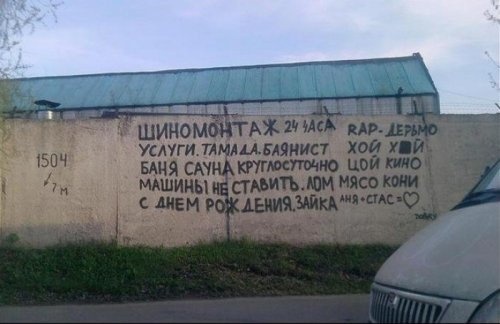 ШИНОМОНТАЖ 24 ЧАСА RAP-ДЕРЬМО
УСЛУГИ. ТАМАДА. БАЯНИСТ ХОЙ
БАНЯ САУНА КРУГЛОСУТОЧНО ЦОЙ КИНО
МАШИНЫ НЕ СТАВИТЬ. ЛОМ МЯСО КОНИ
С ДНЕМ РОЖДЕНИЯ, ЗАЙКА АНЯ+СТАС=♡
1504
7 М